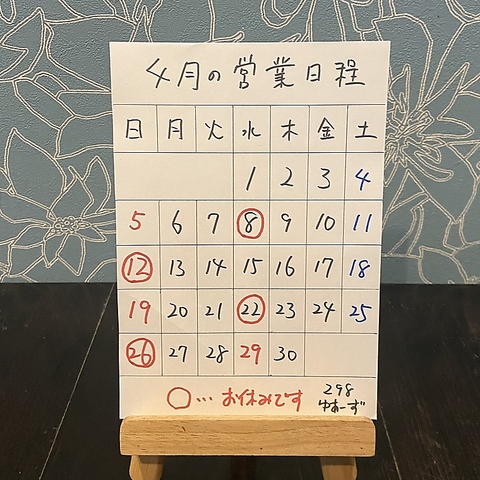 4月の営業日程
日 月 火 水 木 金 土
1 2 3 4
5 6 7 8 9 10 11
12 13 14 15 16 17 18
19 20 21 22 23 24 25
26 27 28 29 30
○…お休みです
298
ゆあーず